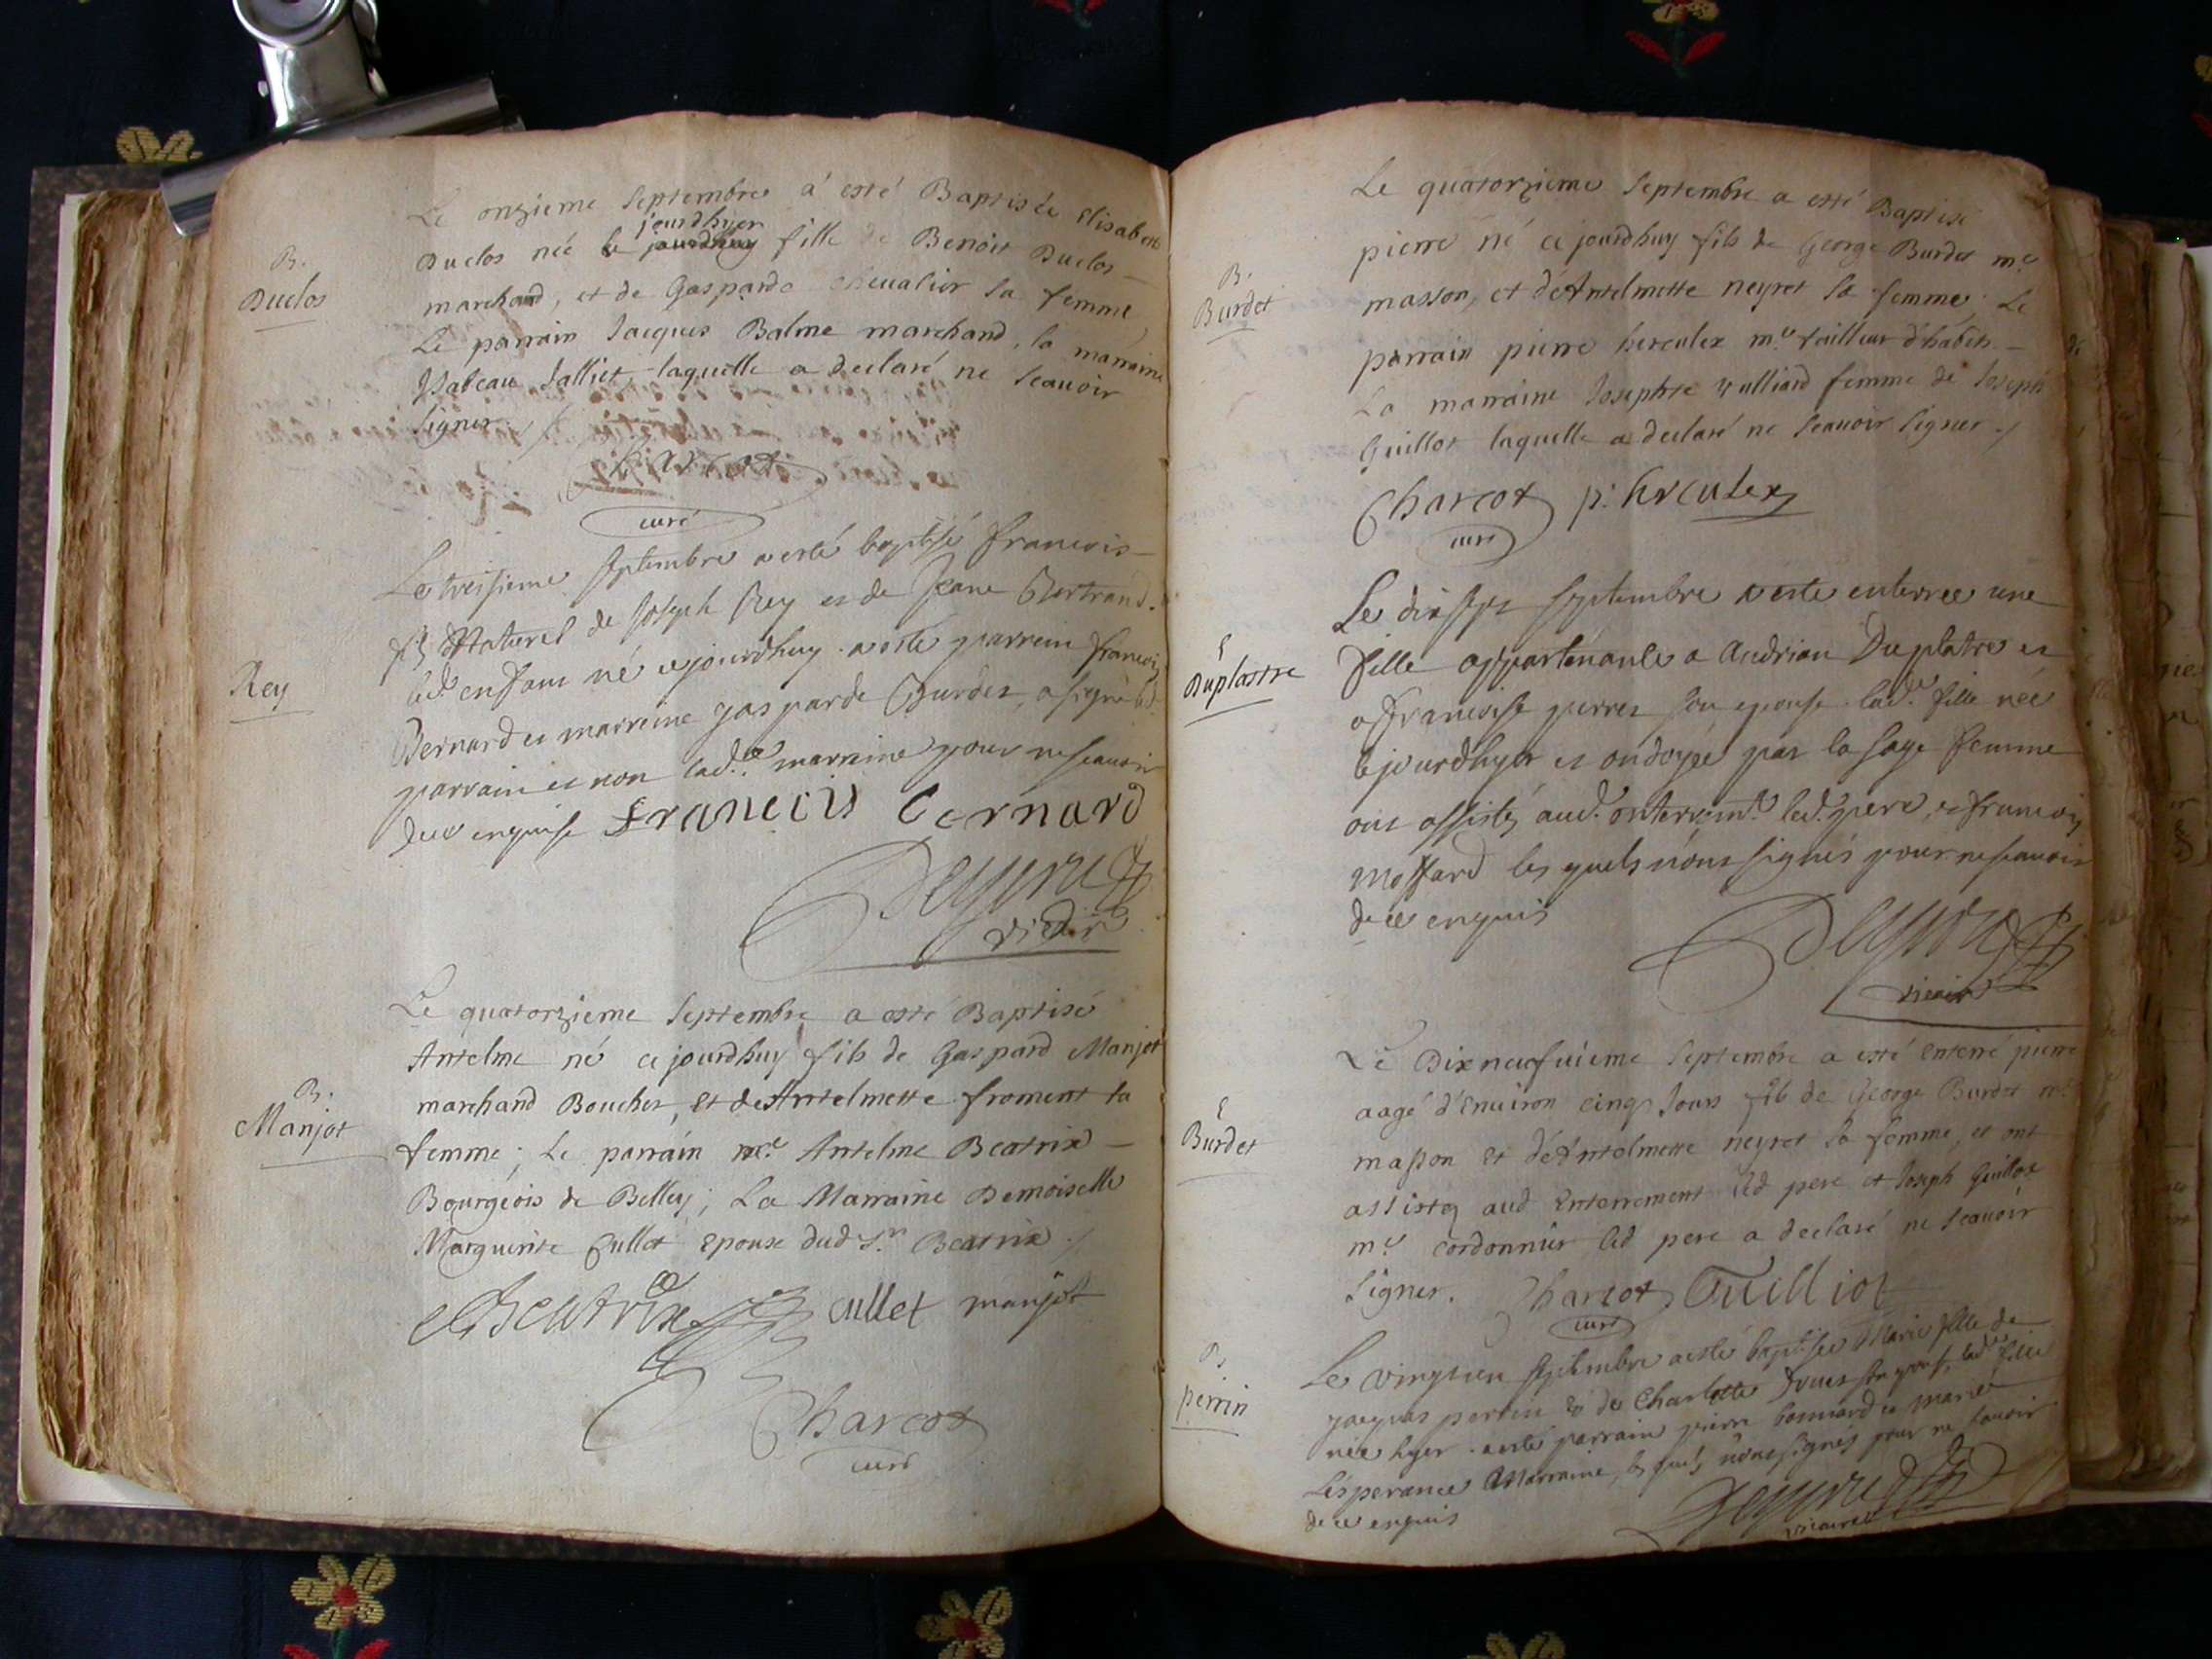 Le onzieme Septembre a esté Baptisée Elisabeth
jourdhyer
B.
Duclos
Duclos née le jourdhuy fille de Benoit Duclos
marchand, et de Gasparde chevalier sa femme
Le parrain Jacques Balme marchand, la marraine
Isabeau Salliet, laquelle a declaré ne scauoir
signer
Charcot
curé
Le treisieme septembre a esté baptisé francois
Rey
fils Naturel de Joseph Rey et de Jeane Bertrand.
led. enfans né cejourdhuy. a esté parrein francois
Bernard et marreine gasparde Burdet, a signé led.
parrain et non lad.e marreine pour ne scauoir
de ce enquise francois bernard
Deyvieu
vicair
Le quatorzieme Septembre a esté Baptisé
Antelme né cejourdhuy fils de Gaspard Manjot
B.
Manjot
marchand Boucher, et de Antelmette froment sa
femme; Le parrain m.e Antelme Beatrix
Bourgeois de Belley; La Marraine Demoiselle
Marguerite Cullet Epouse dud S.r Beatrix
Beatrix cullet manjot
Charcot
curé
Le quatorzieme Septembre a esté Baptisé
pierre né cejourdhuy fils de George Burdet m.e
B.
Burdet
masson, et de Antelmette neyret sa femme. Le
parrain pierre herculex m.e tailleur d'habits
La marraine Josephte vulliard femme de Joseph
Guillot laquelle a declaré ne scauoir signer
Charcot p. herculex
curé
Le dix sept septembre a esté enterree une
E
Duplastre
fille appartenante a Andrian Duplatre et
a francoise perret son epouse. lad.e fille née
lejourdhyer et ondoyée par la sage femme
ont assistés aud. enterrem.t led. pere, et francois
Moffard les quels n'ons signés pour ne scauoir
de ce enquis
Deyvieu
vicair
Le Dix neufuieme Septembre a esté enterré pierre
aagé d'Enuiron cinq Jours fils de George Burdet m.e
E
Burdet
masson et de Antelmette neyret sa femme, et ont
assistez aud Enterrement led pere et Joseph Guillot
m.e cordonnier led pere a declaré ne scauoir
signer. Charcot Guilliot
curé
Le vingt un septembre a esté baptisée Marie fille de
B.
perrin
jacques perrin et de Charlotte son epouse, lad.e fille
née hyer. a esté parrain pierre bonnard et marie
Lésperance Marraine, les quels n'ons signés pour ne scauoir
de ce enquis
Deyvieu
vicaire